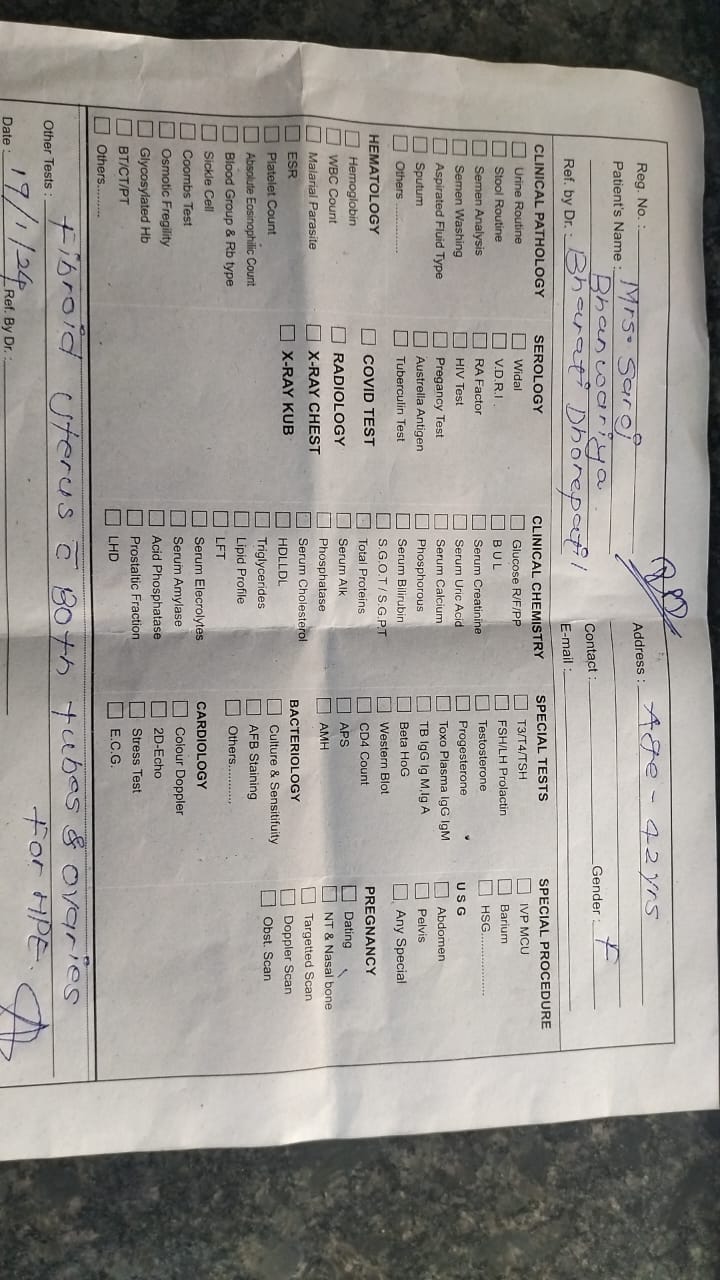 Reg. No. :
Patient's Name : Mrs. Saroj
Bhanwariya
Ref. by Dr. : Bharati Dhorepatil
Address : Age - 42 yrs
Gender : F
Contact :
E-mail :
CLINICAL PATHOLOGY
Urine Routine
Stool Routine
Semen Analysis
Semen Washing
Aspirated Fluid Type
Sputum
Others ..............
HEMATOLOGY
Hemoglobin
WBC Count
Malarial Parasite
ESR
Platelet Count
Absolute Eosinophilic Count
Blood Group & Rb type
Sickle Cell
Coombs Test
Osmotic Fregility
Glycosylated Hb
BT/CT/PT
Others.........
SEROLOGY
Widal
V.D.R.I .
RA Factor
HIV Test
Pregancy Test
Austrella Antigen
Tuberculin Test
COVID TEST
RADIOLOGY
X-RAY CHEST
X-RAY KUB
CLINICAL CHEMISTRY
Glucose R/F/PP
B U L
Serum Creatinine
Serum Uric Acid
Serum Calcium
Phosphorous
Serum Bilirubin
S.G.O.T / S.G.P.T
Total Proteins
Serum Alk
Phosphatase
Serum Cholesterol
HDLLDL
Triglycerides
Lipid Profile
LFT
Serum Elecrolytes
Serum Amylase
Acid Phosphatase
Prostaltic Fraction
LHD
SPECIAL TESTS
T3/T4/TSH
FSH/LH Prolactin
Testosterone
Progesterone
Toxo Plasma IgG IgM
TB IgG Ig M,Ig A
Beta HoG
Western Blot
CD4 Count
APS
AMH
BACTERIOLOGY
Culture & Sensitifuity
AFB Staining
Others...........
CARDIOLOGY
Colour Doppler
2D-Echo
Stress Test
E.C.G.
SPECIAL PROCEDURE
IVP MCU
Barium
HSG................
U S G
Abdomen
Pelvis
Any Special
PREGNANCY
Dating
NT & Nasal bone
Targetted Scan
Doppler Scan
Obst. Scan
Other Tests : Fibroid Uterus c̄ Both tubes & ovaries
For HPE.
Date : 17/1/24 Ref. By Dr. :